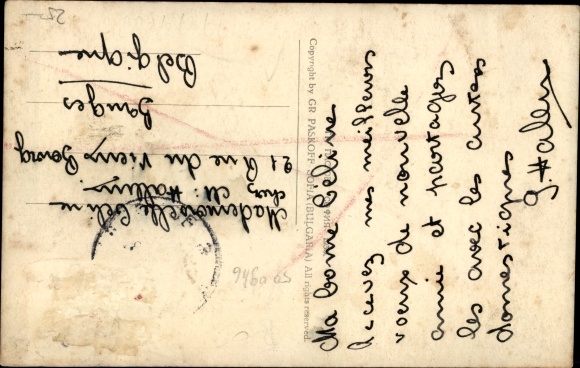 Ma bonne Celine
Recevez mes meilleurs
voeux de nouvelle
année et partagez
les avec les autres
domestiques
Mademoiselle Celine
chez M.
21 Rue du Vieux Bourg
Bruges
Belgique
Copyright by GR. PASKOFF SOFIA (BULGARIA) All rights reserved.
25-